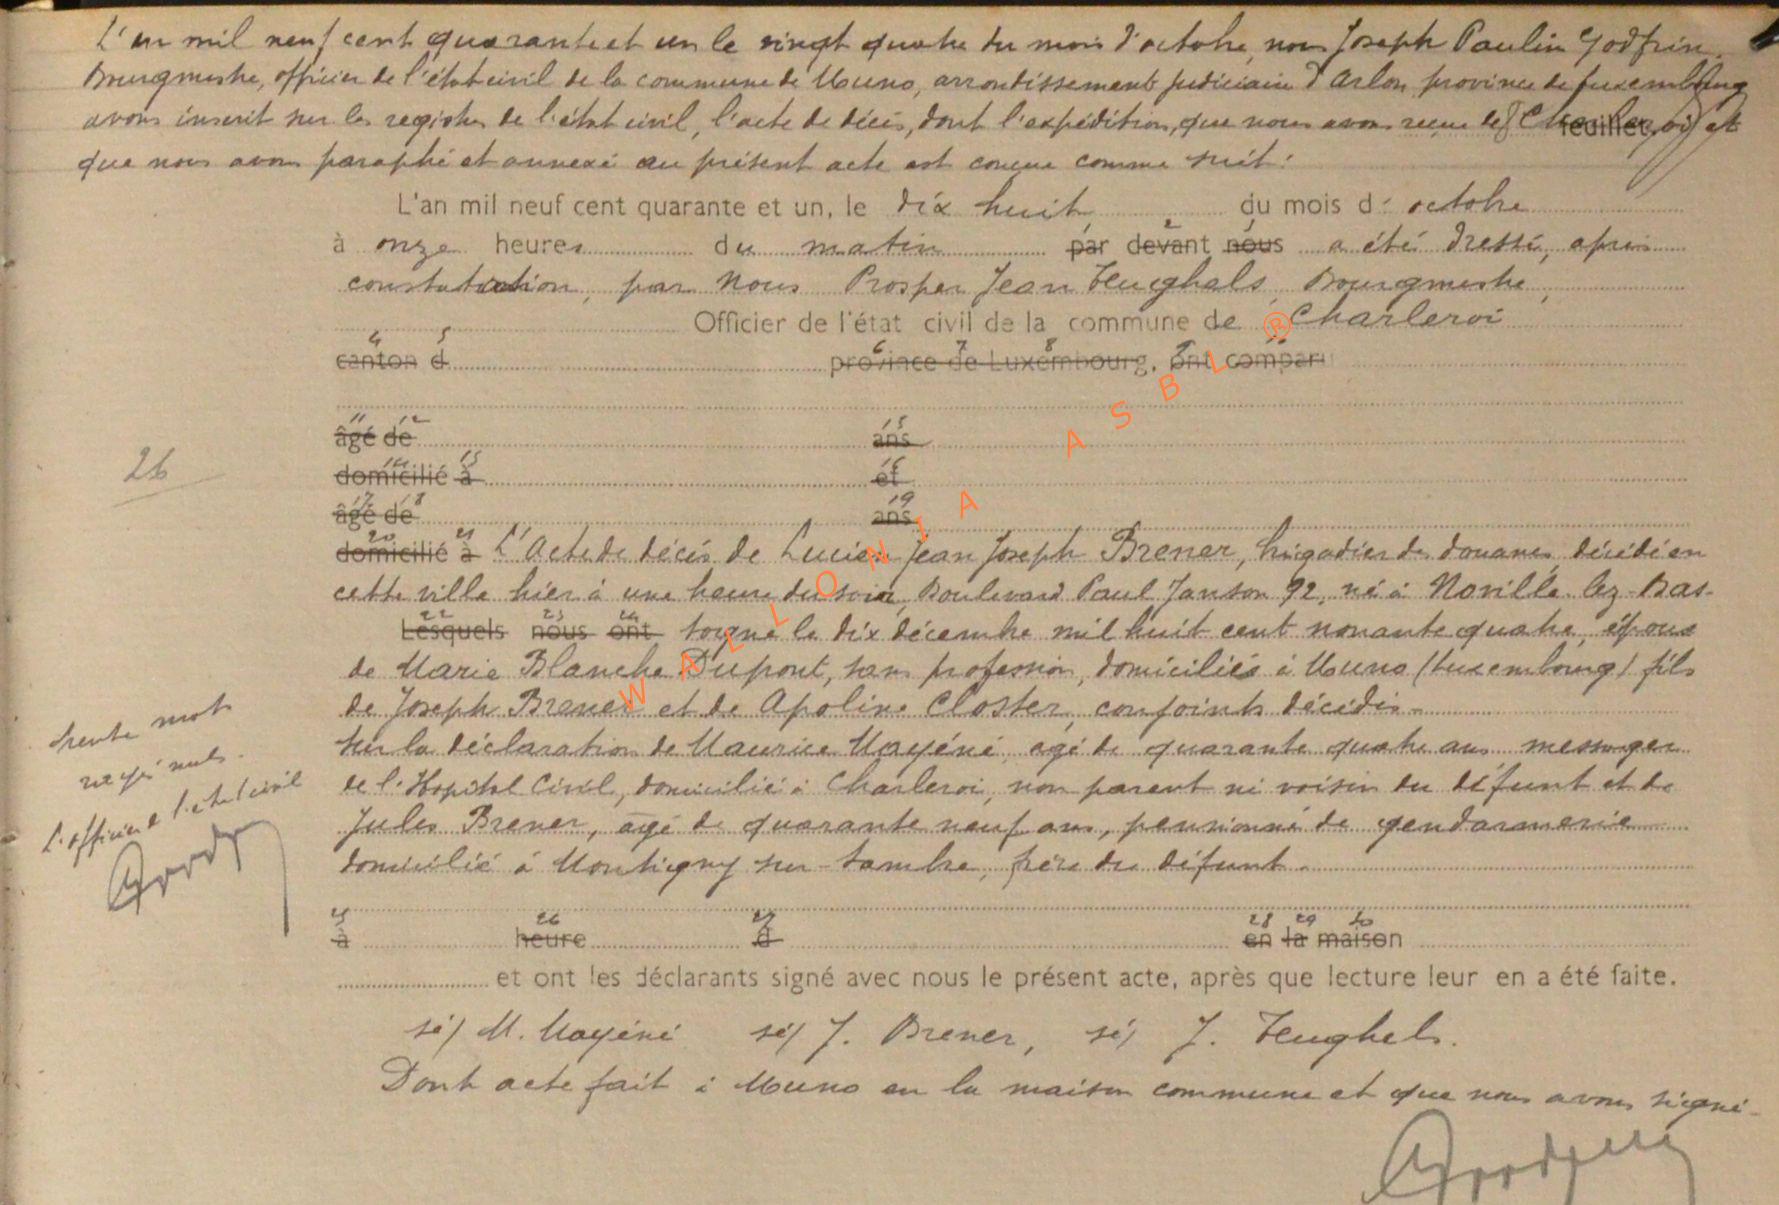 L'an mil neuf cent quarante et un le vingt quatre du mois d'octobre, nous Joseph Paulin Godfrin,
Bourgmestre, officier de l'état civil de la commune de Muno, arrondissement judiciaire d'Arlon province de Luxembourg
avons inscrit sur les registres de l'état civil, l'acte de décès, dont l'expédition, que nous avons reçue de Charleroi et
feuillet.
que nous avons paraphé et annexé au présent acte est conçue comme suit:
L'an mil neuf cent quarante et un, le dix huit du mois d' octobre
à onze heures du matin par devant nous a été dressé, après
1 2 3
constatation, par Nous Prosper Jean Teughels, Bourgmestre,
Officier de l'état civil de la commune de Charleroi
4 5 6 7 8 9 10
canton d province de Luxembourg, ont comparu
11 12 13
âgé de ans
14 15 16
domicilié à et
17 18 19
âgé de ans
20 21
domicilié à L'Acte de décès de Lucien Jean Joseph Brener, brigadier des douanes, décédé en
cette ville hier à une heure du soir, Boulevard Paul Janson 92, né à Noville-lez-Bas-
22 23 24
Lesquels nous ont togne le dix décembre mil huit cent nonante quatre, époux
de Marie Blanche Dupont, sans profession, domiciliés à Muno (Luxembourg) fils
de Joseph Brener et de Apoline Closter, conjoints décédés.
Sur la déclaration de Maurice Mayéné, agé de quarante quatre ans messager
de l'Hopital Civil, domicilié à Charleroi, non parent ni voisin du défunt et de
Jules Brener, âgé de quarante neuf ans, pensionné de gendarmerie
domicilié à Montigny sur-Sambre, frère du défunt.
25 26 27 28 29 30
à heure d en la maison
et ont les déclarants signé avec nous le présent acte, après que lecture leur en a été faite.
sé) M. Mayéné sé) J. Brener, sé) J. Teughels.
Dont acte fait à Muno en la maison commune et que nous avons signé.
26
trente mots
rayés nuls.
L'officier de l'état civil
WALLONIA ASBL ®